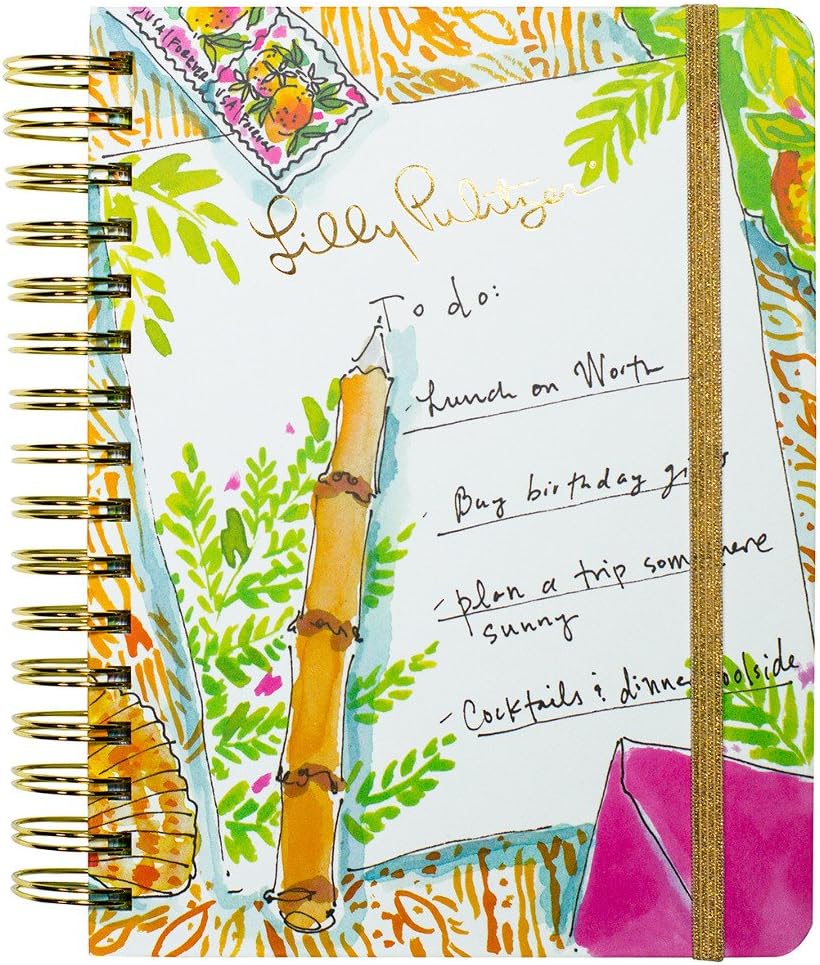 USA Forever
USA Forever
Lilly Pulitzer
To do:
- Lunch on Worth
- Buy birthday
- plan a trip
sunny
- Cocktails &